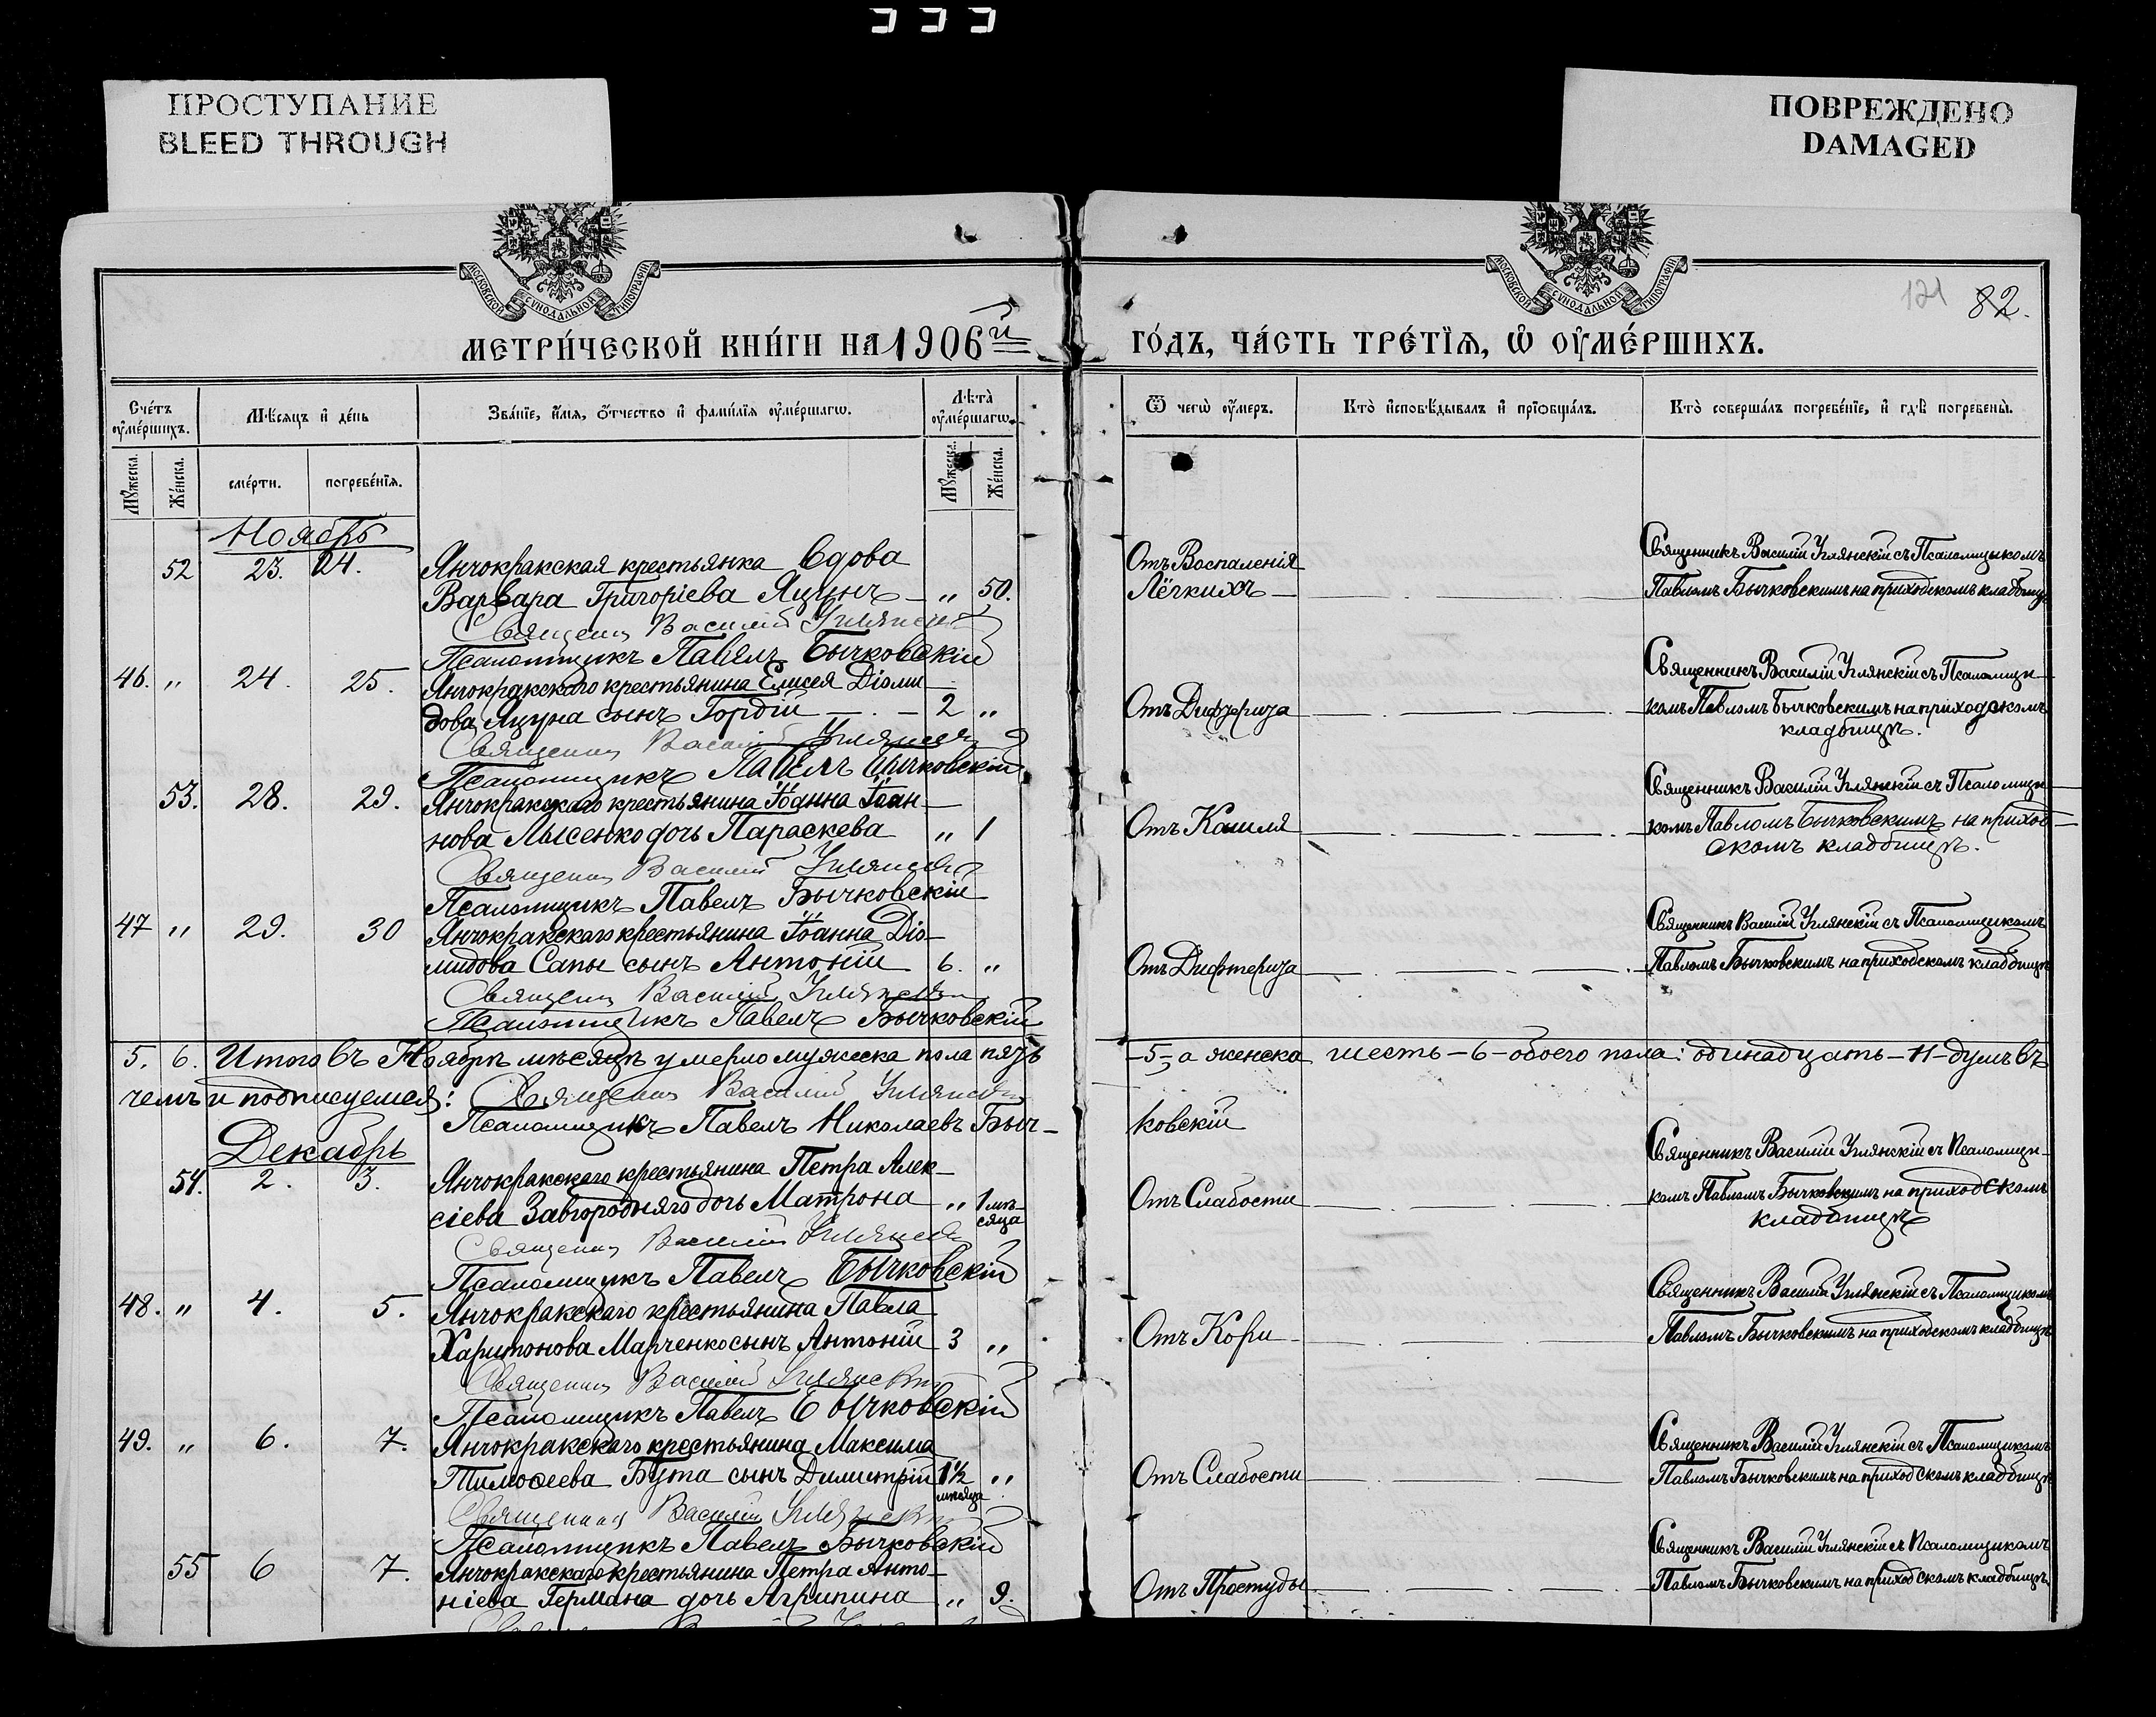 ПРОСТУПАНИЕ
BLEED THROUGH
ПОВРЕЖДЕНО
DAMAGED
МОСКОВСКОЙ СѴНОДАЛЬНОЙ ТИПОГРАФІИ
МОСКОВСКОЙ СѴНОДАЛЬНОЙ ТИПОГРАФІИ
121 82.
МЕТРИ́ЧЕСКОЙ КНИ́ГИ НА 1906й ГО́ДЪ, ЧА́СТЬ ТРЕ́ТІѦ, Ѡ ОУ҆МЕ́РШИХЪ.
Сче́тъ оу҆ме́ршихъ.
Мѣ́сяцъ и҆ де́нь
Зва́нїе, и҆́мѧ, ѻ҆́тчество и҆ фами́лїѧ оу҆ме́ршагѡ.
Лѣта̀ оу҆ме́ршагѡ.
Ѿ чегѡ̀ оу҆́меръ.
Кто̀ и҆сповѣ́дывалъ и҆ прїѡбща́лъ.
Кто̀ соверша́лъ погребе́нїе, и҆ гдѣ̀ погребены̀.
Мꙋ́жеска. Же́нска. сме́рти. погребе́нїѧ. Мꙋ́жеска. Же́нска.
Ноябрь
52 23. 24. Янчокракская крестьянка вдова
Варвара Григоріева Яцунъ „ 50.
Отъ Воспаленія
Лёгкихъ
Священникъ Василій Углянскій съ Псаломщикомъ
Павломъ Бычковскимъ на приходскомъ кладбищѣ
Священник Василій Углянскій
Псаломщикъ Павелъ Бычковскій
46. „ 24. 25. Янчокракского крестьянина Елисея Діоми
дова Яцуна сынъ Гордій 2 „
Отъ Дифтерита
Священникъ Василій Углянскій съ Псаломщи
комъ Павломъ Бычковскимъ на приходскомъ
кладбищѣ.
Священник Василій Углянскій
Псаломщикъ Павелъ Бычковскій
53. 28. 29. Янчокракского крестьянина Іоанна Іоан
нова Лысенко дочь Параскева „ 1
Отъ Кашля
Священникъ Василій Углянскій съ Псаломщи
комъ Павломъ Бычковскимъ на приход
скомъ кладбищѣ.
Священник Василій Углянскій
Псаломщикъ Павелъ Бычковскій
47 „ 29. 30 Янчокракского крестьянина Іоанна Діо
мидова Сапы сынъ Антоній 6. „
Отъ Дифтерита
Священникъ Василій Углянскій съ Псаломщикомъ
Павломъ Бычковскимъ на приходскомъ кладбищѣ
Священник Василій Углянскій
Псаломщикъ Павелъ Бычковскій
5. 6. Итого въ Ноябрѣ мѣсяцѣ умерло мужеска пола пять -5-, а женска шесть -6- обоего пола: одинадцать -11- душъ въ
чемъ и подписуемся: Священник Василій Углянскій
Псаломщикъ Павелъ Николаевъ Быч-
ковскій
Декабрь
54. 2. 3. Янчокракского крестьянина Петра Алек-
сіева Завгородняго дочь Матрона „ 1 мѣ-
сяца
Отъ Слабости
Священникъ Василій Углянскій съ Псаломщи
комъ Павломъ Бычковскимъ на приходскомъ
кладбищѣ
Священник Василій Углянскій
Псаломщикъ Павелъ Бычковскій
48. „ 4. 5. Янчокракского крестьянина Павла
Харитонова Марченко сынъ Антоній 3 „
Отъ Кори
Священникъ Василій Углянскій съ Псаломщикомъ
Павломъ Бычковскимъ на приходскомъ кладбищѣ
Священник Василій Углянскій
Псаломщикъ Павелъ Бычковскій
49. „ 6. 7. Янчокракского крестьянина Максима
Тимоѳеева Бута сынъ Димитрій 1½ „
мѣсяца
Отъ Слабости
Священникъ Василій Углянскій съ Псаломщикомъ
Павломъ Бычковскимъ на приходскомъ кладбищѣ
Священник Василій Углянскій
Псаломщикъ Павелъ Бычковскій
55 6 7. Янчокракского крестьянина Петра Анто-
ніева Германа дочь Агрипина „ 9.
Отъ Простуды
Священникъ Василій Углянскій съ Псаломщикомъ
Павломъ Бычковскимъ на приходскомъ кладбищѣ